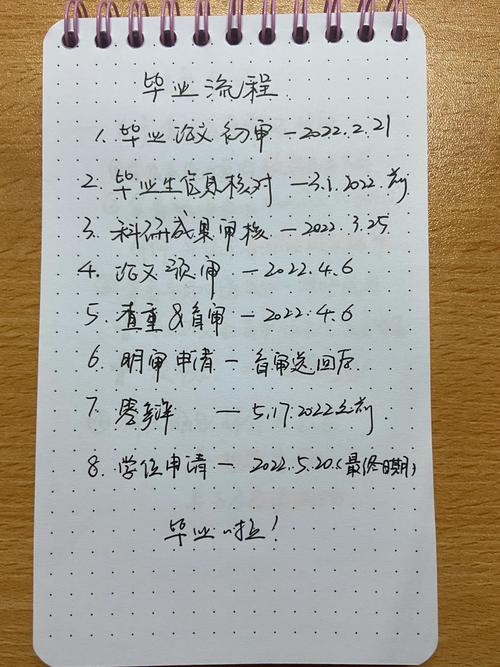 毕业流程
1. 毕业论文初审 — 2022.2.21
2. 毕业生信息核对 — 3.1.2022前
3. 科研成果审核 — 2022.3.25
4. 论文预审 — 2022.4.6
5. 查重&盲审 — 2022.4.6
6. 明审申请 — 盲审返回后
7. 答辩 — 5.17.2022之前
8. 学位申请 — 2022.5.20.(最终日期)
毕业啦!